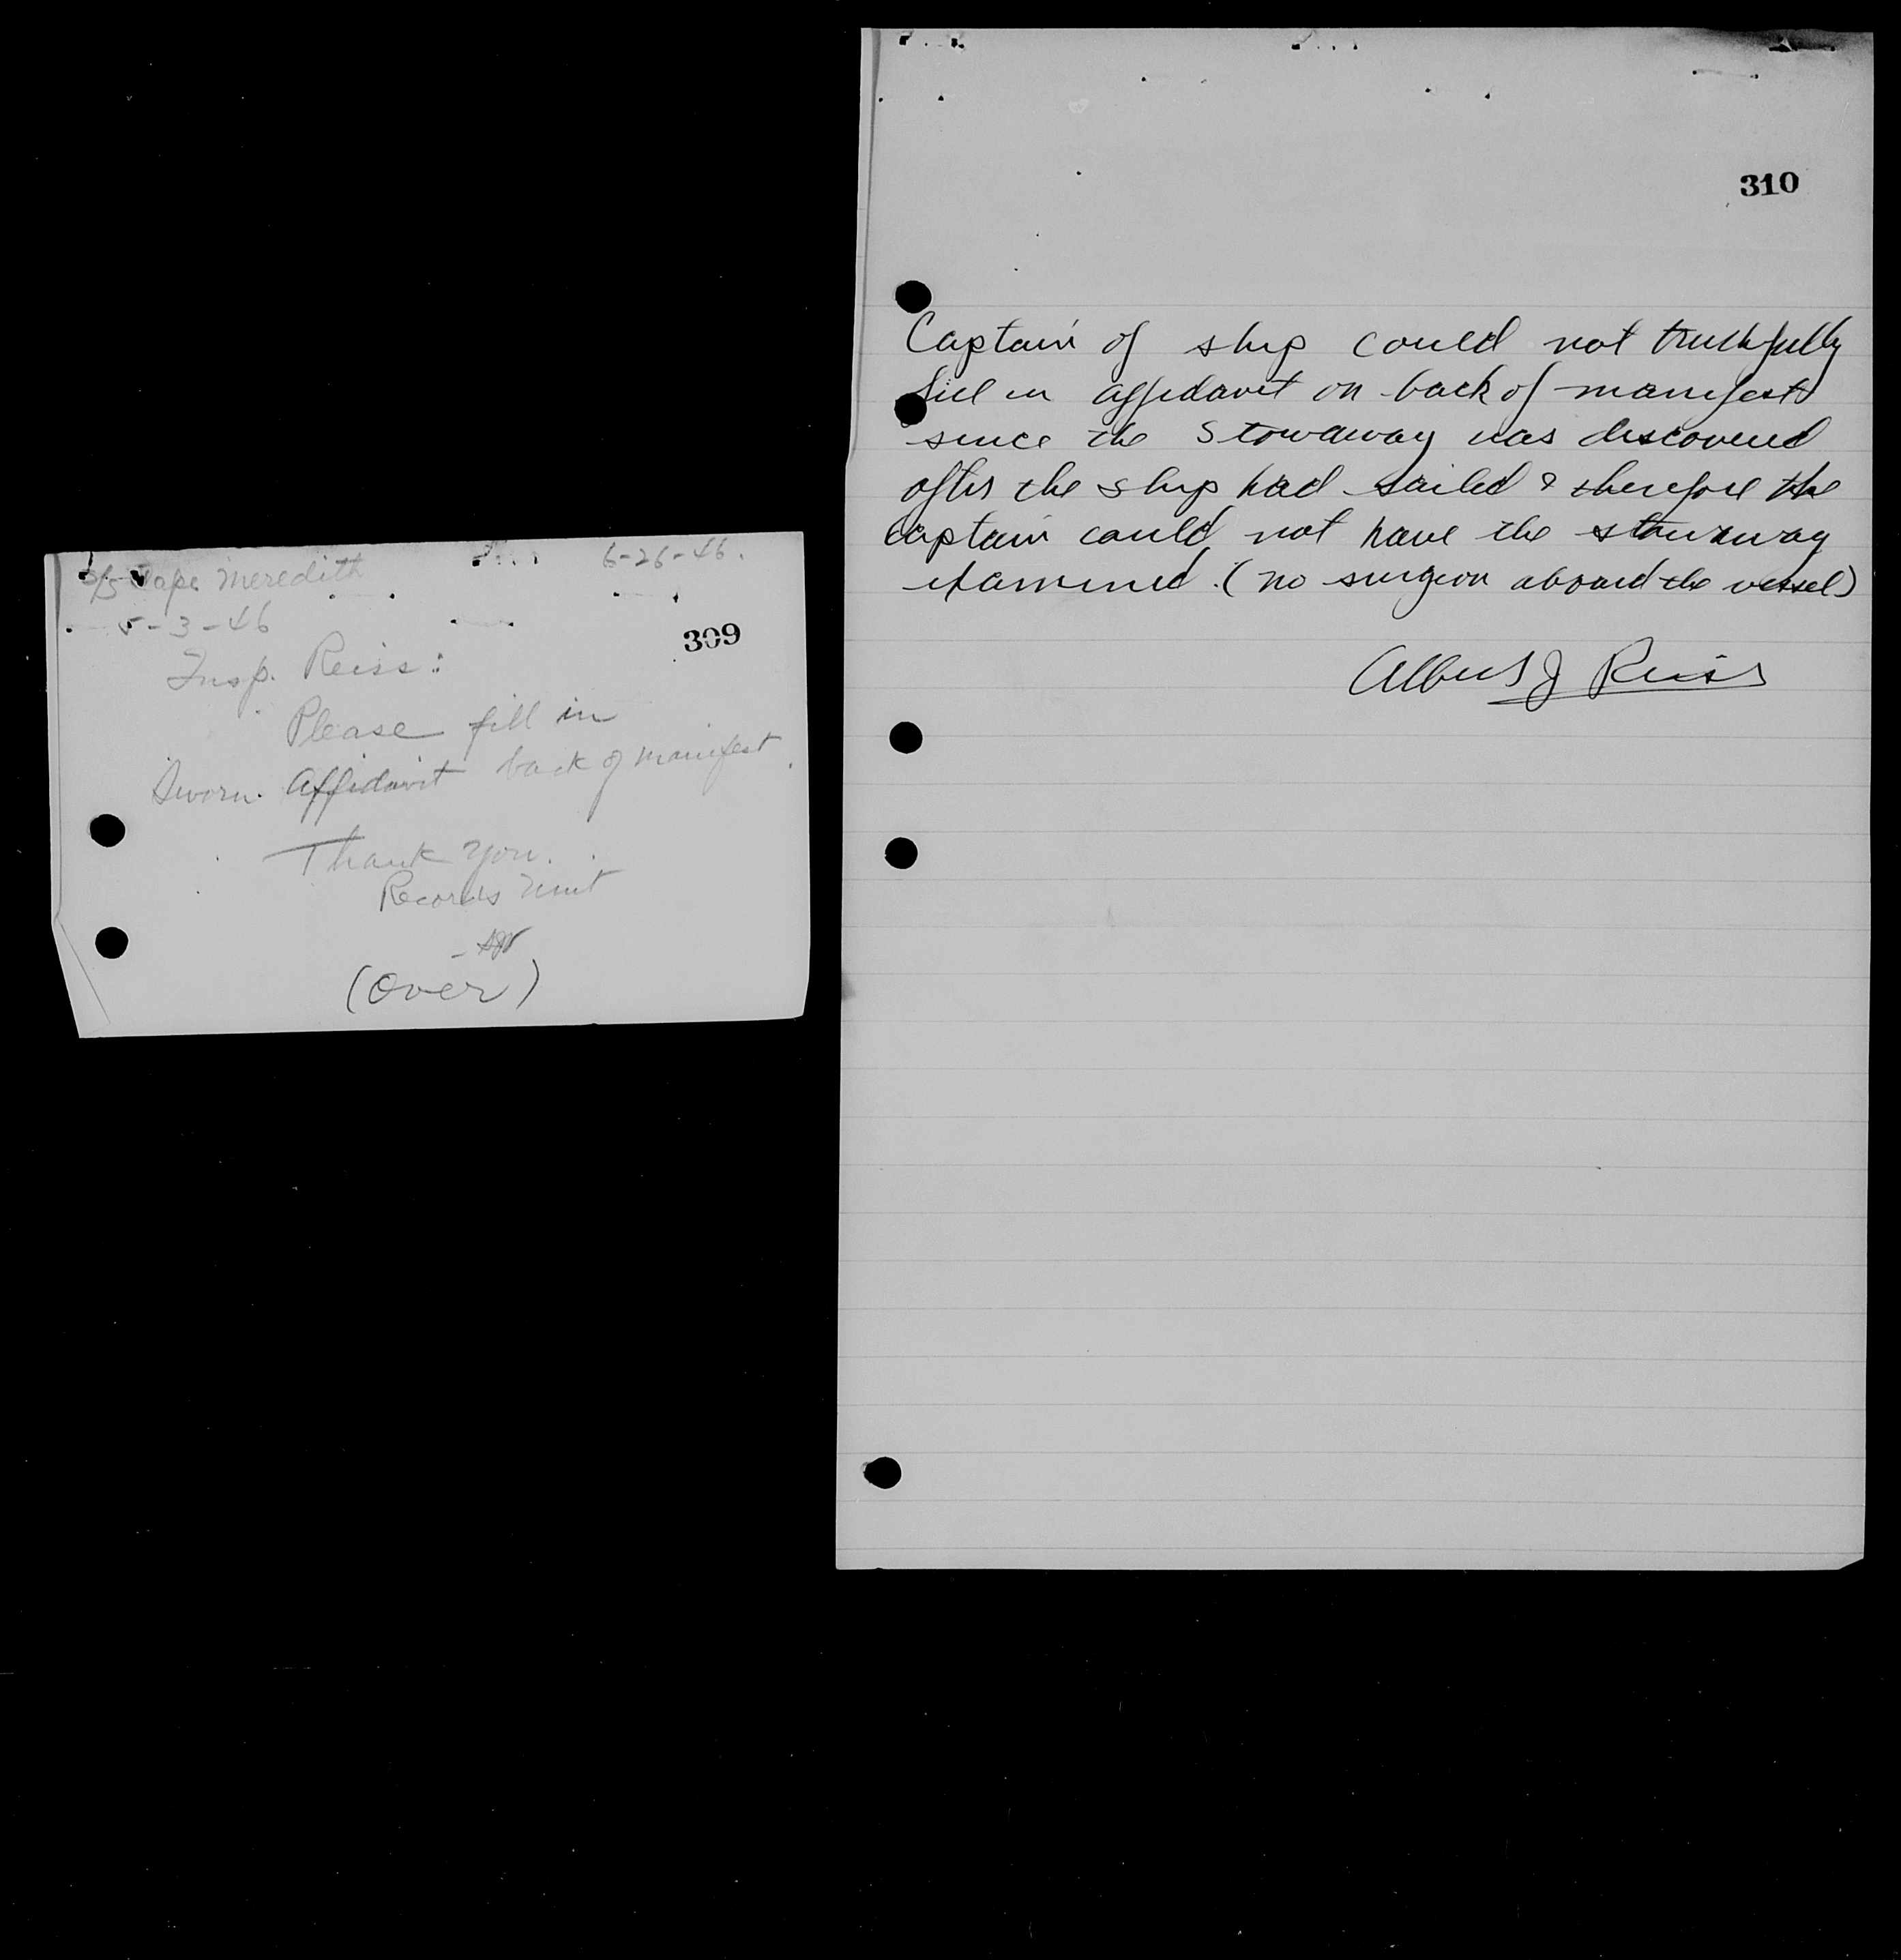 S/S Cape Meredith 6-26-46.
5-3-46
309
Insp. Reiss:
Please fill in
Sworn Affidavit back of manifest.
Thank you.
Records Unit
(Over)
310
Captain of ship could not truthfully
fill in affidavit on back of manifest
since the stowaway was discovered
after the ship had sailed & therefore the
captain could not have the stowaway
examined. (no surgeon aboard the vessel)
Albert J Reiss